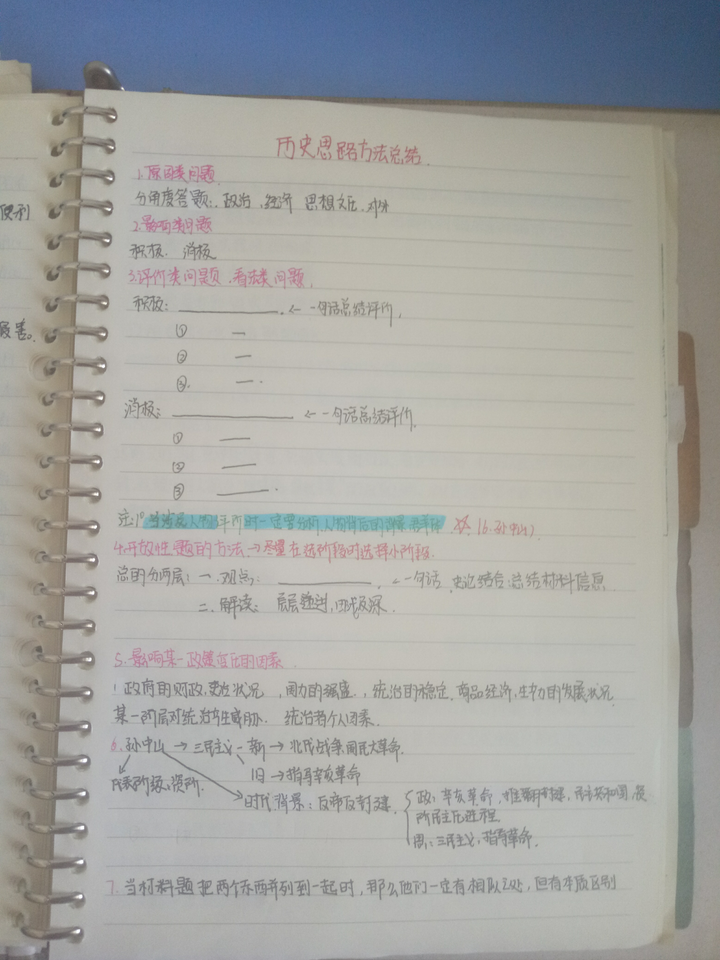 历史思路方法总结.
1.原因类问题
分角度答题:.政治.经济 思想文化.对外
2.影响类问题
积极. 消极
3.评价类问题.看法类问题.
积极: . ← 一句话总结评价.
① —
② —
③. —.
消极: ← 一句话总结评价.
① —
② —
③ —
注:1° 人物 时一定要分析人物背后的
4.开放性题的方法→尽量在选阶段时选择小阶段.
总的分两层: 一.观点: . ← 一句话.史论结合.总结材料信息
二.解读: 层层递进,由浅及深.
5.影响某一政策变化的因素.
1.政府的财政,统治状况 ,国力的强盛. ,统治的稳定.商品经济,生产力的发展状况.
某一阶层对统治产生威胁. 统治者个人因素.
6.孙中山 → 三民主义 - 新 → 北伐战争国民大革命.
旧 → 指导辛亥革命
代表阶级:资阶.
时代背景:反帝反封建. 政:辛亥革命, 民主共和国,资
阶民主化进程
思:三民主义,指导革命.
7.当材料题把两个东西并列到一起时,那么他们一定有相似之处,但有本质区别
便利
及害。